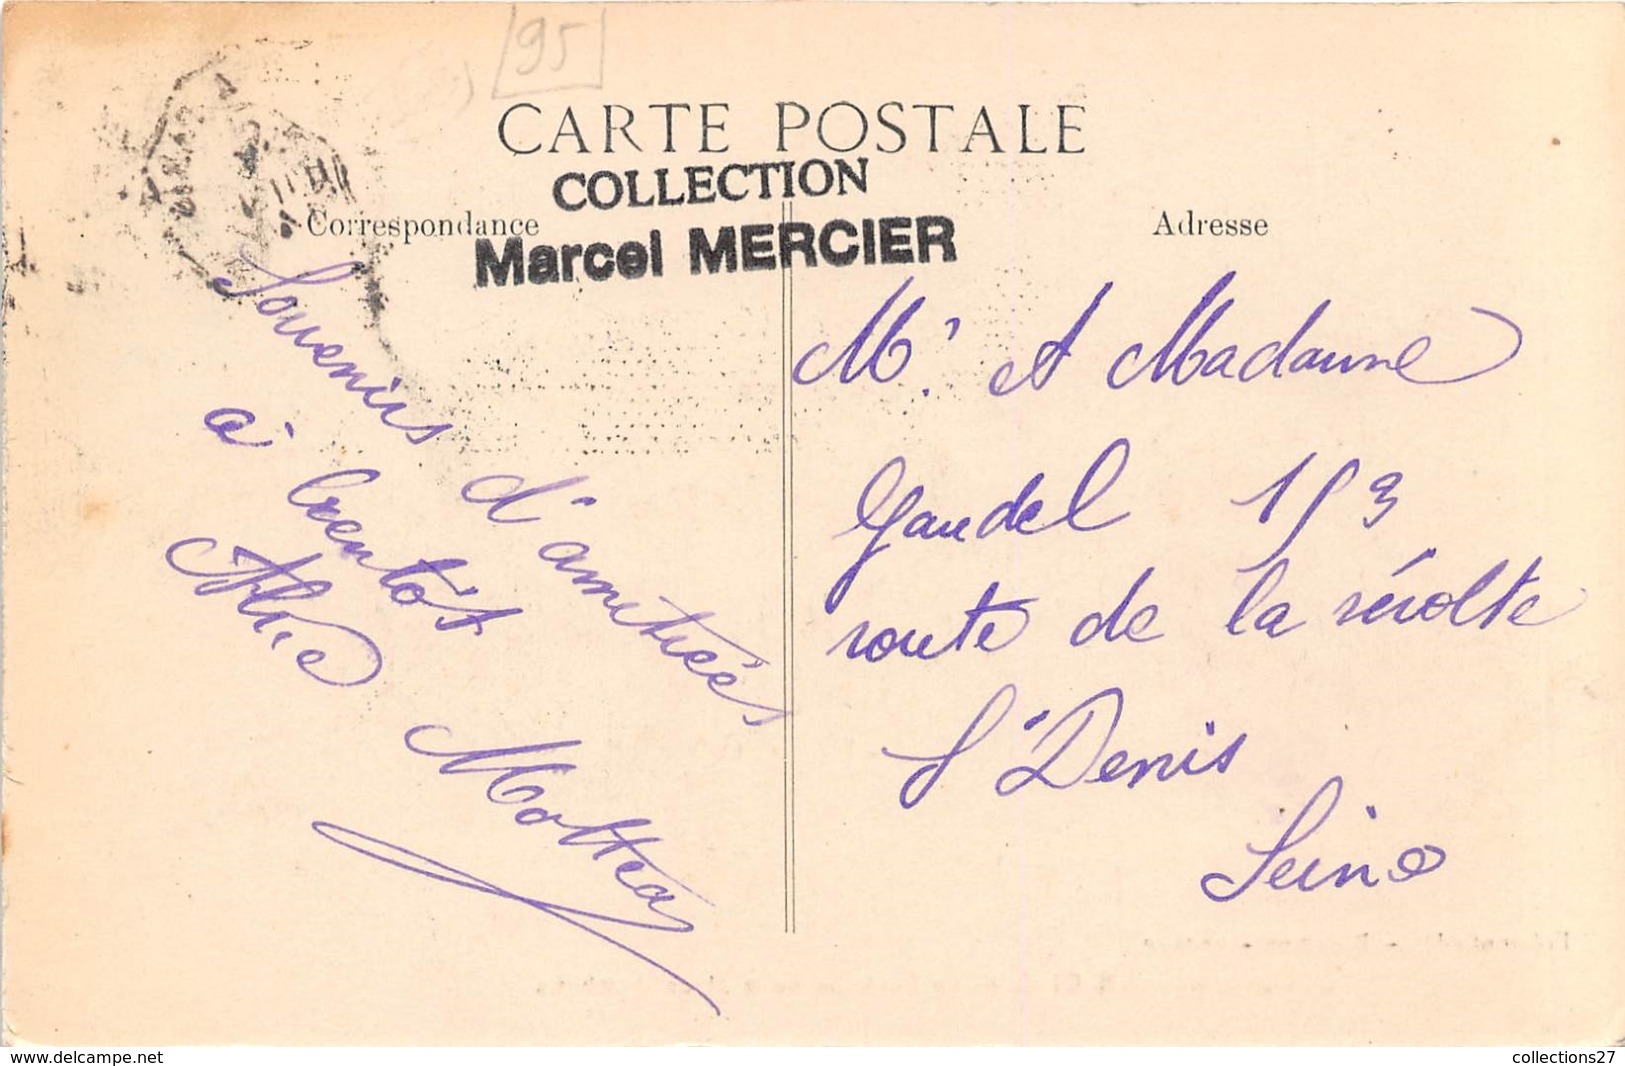 95
CARTE POSTALE
COLLECTION
Marcel MERCIER
Correspondance
Adresse
Souvenirs d'amitiées
à bientôt
Mr. et Madame
Gaudel 153
route de la révolte
St Denis
Seine
www.delcampe.net
collections27